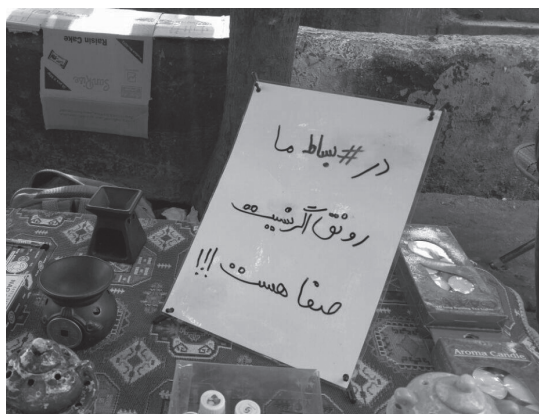 Raisin Cake
در #بساط ما
رونق اگر نیست
صفا هست !!!
Aroma Candle